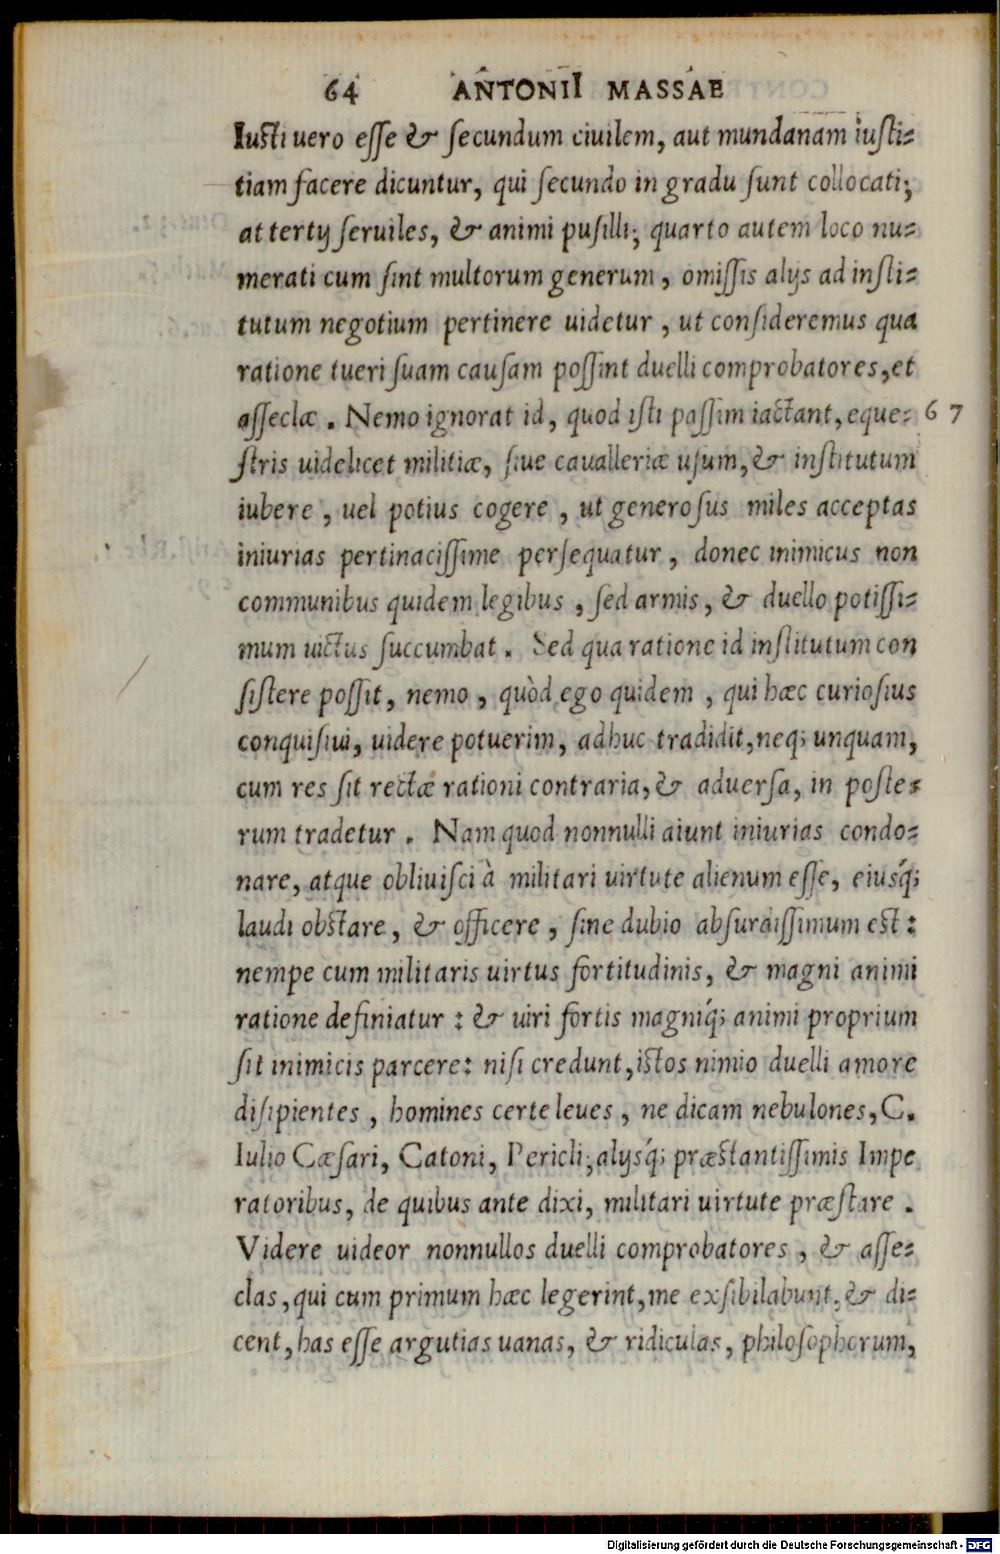 64 ANTONII MASSAE
Iusti uero esse & secundum ciuilem, aut mundanam iusti-
tiam facere dicuntur, qui secundo in gradu sunt collocati;
at tertij seruiles, & animi pusilli; quarto autem loco nu-
merati cum sint multorum generum, omissis alijs ad insti-
tutum negotium pertinere uidetur, ut consideremus qua
ratione tueri suam causam possint duelli comprobatores, et
asseclæ. Nemo ignorat id, quod isti passim iactant, eque- 67
stris uidelicet militiæ, siue caualleriæ usum, & institutum
iubere, uel potius cogere, ut generosus miles acceptas
iniurias pertinacissime persequatur, donec inimicus non
communibus quidem legibus, sed armis, & duello potissi-
mum uictus succumbat. Sed qua ratione id institutum con
sistere possit, nemo, quòd ego quidem, qui hæc curiosius
conquisiui, uidere potuerim, adhuc tradidit, neq; unquam,
cum res sit rectæ rationi contraria, & aduersa, in poste-
rum tradetur. Nam quod nonnulli aiunt iniurias condo-
nare, atque obliuisci à militari uirtute alienum esse, eiusq́;
laudi obstare, & officere, sine dubio absurdissimum est:
nempe cum militaris uirtus fortitudinis, & magni animi
ratione definiatur: & uiri fortis magniq́; animi proprium
sit inimicis parcere: nisi credunt, istos nimio duelli amore
disipientes, homines certe leues, ne dicam nebulones, C.
Iulio Cæsari, Catoni, Pericli, alijsq́; præstantissimis Impe
ratoribus, de quibus ante dixi, militari uirtute præstare.
Videre uideor nonnullos duelli comprobatores, & asse-
clas, qui cum primum hæc legerint, me exsibilabunt, & di-
cent, has esse argutias uanas, & ridiculas, philosophorum,
Digitalisierung gefördert durch die Deutsche Forschungsgemeinschaft - DFG